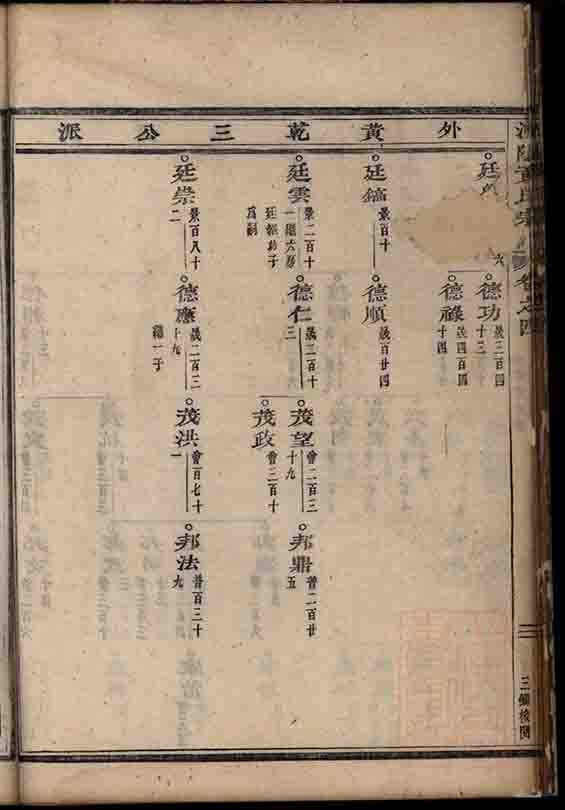 外黃乾三公派
廷
六
廷鎬 景百十
廷雲 景二百十
一繼六房
廷
子
爲嗣
廷崇 景百八十
二
德功 晟三百四
十三
德祿 晟四百四
十四
德順 晟百廿四
德仁 晟二百十
三
德應 晟二百三
十九
繼一子
茂望 會二百三
十九
茂政 會三百十
茂洪 會百七十
一
邦鼎 普二百廿
五
邦法 普百三十
九
卷之四